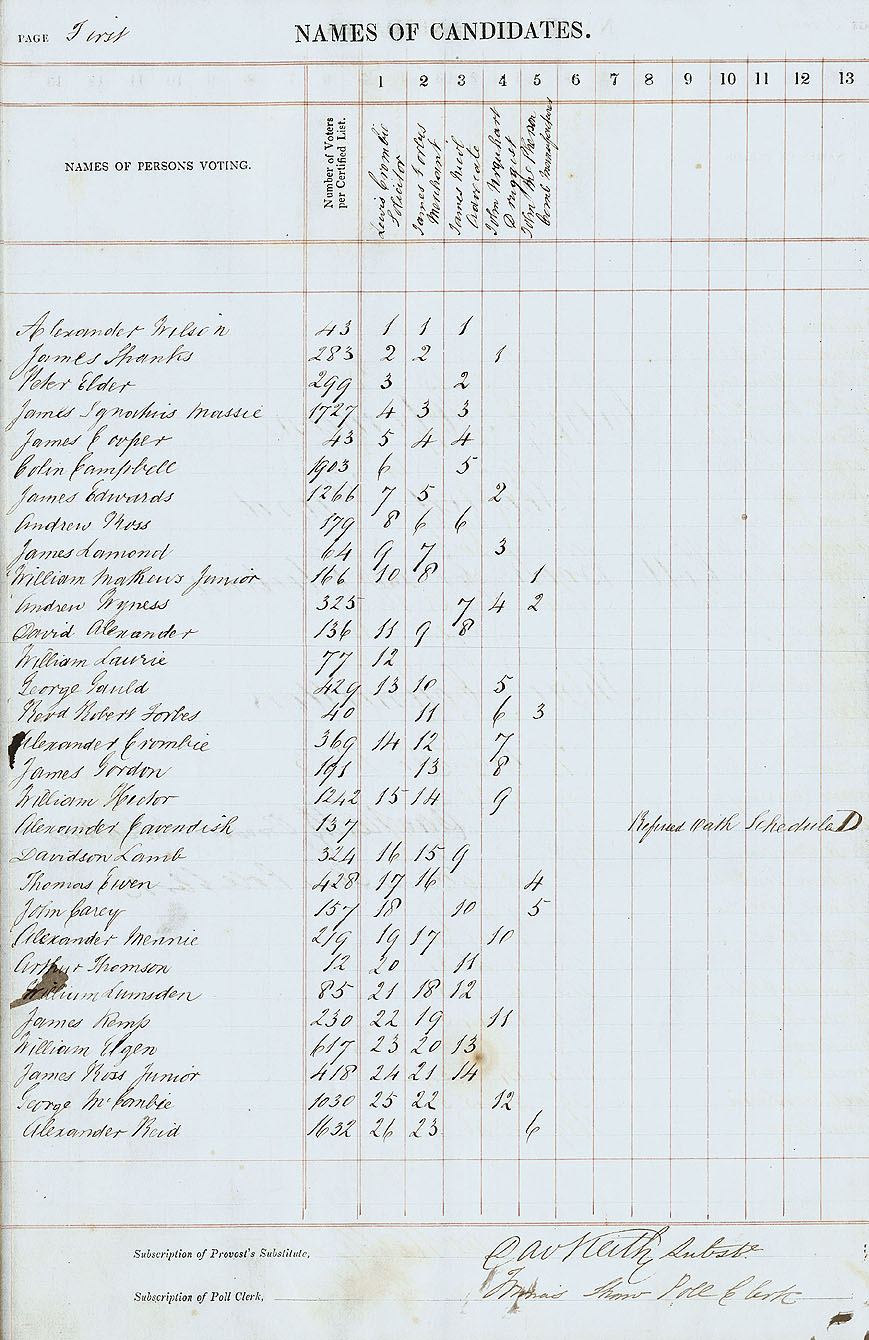 PAGE First NAMES OF CANDIDATES.
1 2 3 4 5 6 7 8 9 10 11 12 13
NAMES OF PERSONS VOTING.
Number of Voters
per Certified List.
Lewis Crombie
Solicitor
James Forbes
Merchant
James Nicol
Advocate
John Urquhart
Druggist
John McPherson
Comb Manufacturer
Alexander Wilson 43 1 1 1
James Shanks 283 2 2 1
Peter Elder 299 3 2
James Ignatius Massie 1727 4 3 3
James Cooper 43 5 4 4
Colin Campbell 1903 6 5
James Edwards 1266 7 5 2
Andrew Ross 179 8 6 6
James Lamond 64 9 7 3
William Mathews Junior 166 10 8 1
Andrew Wyness 325 7 4 2
David Alexander 136 11 9 8
William Lawrie 77 12
George Gauld 429 13 10 5
Revd Robert Forbes 40 11 6 3
Alexander Crombie 369 14 12 7
James Gordon 191 13 8
William Hector 1242 15 14 9
Alexander Cavendish 137 Refused Oath Schedule D
Davidson Lamb 324 16 15 9
Thomas Ewen 428 17 16 4
John Carey 157 18 10 5
Alexander Mennie 219 19 17 10
Arthur Thomson 12 20 11
William Lumsden 85 21 18 12
James Kemp 230 22 19 11
William Elgen 617 23 20 13
James Ross Junior 418 24 21 14
George McCombie 1030 25 22 12
Alexander Reid 1632 26 23 6
Subscription of Provost's Substitute, Keith, Subst.
Subscription of Poll Clerk, Shaw Poll Clerk